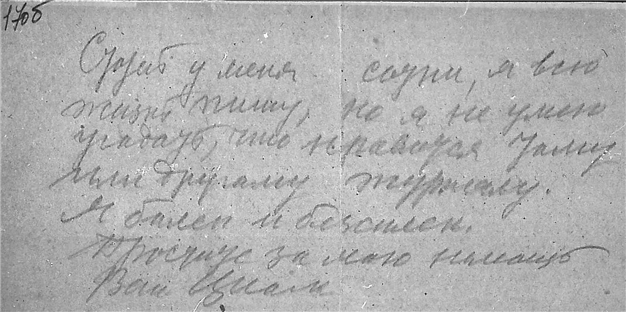 170б
у меня сотни, я всю
жизнь пишу, но я не умею
угадать, что нравится тому
или другому журналу.
Я болен и бессилен.
Простите за мою немощь
Ваш